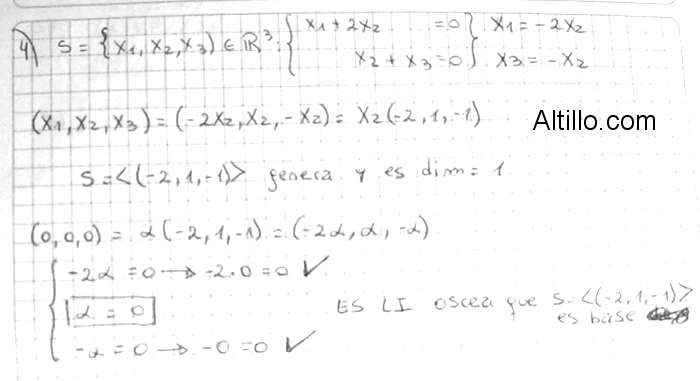 4) S = {x1, x2, x3) ∈ ℝ³: { x1 + 2x2 = 0 } x1 = -2x2
x2 + x3 = 0 } x3 = -x2
(x1, x2, x3) = (-2x2, x2, -x2) = x2(-2, 1, -1)
Altillo.com
S = <(-2, 1, -1)> genera y es dim = 1
(0,0,0) = α(-2, 1, -1) = (-2α, α, -α)
{ -2α = 0 → -2.0 = 0 ✓
α = 0
-α = 0 → -0 = 0 ✓
ES LI oscea que S. <(-2, 1, -1)>
es base